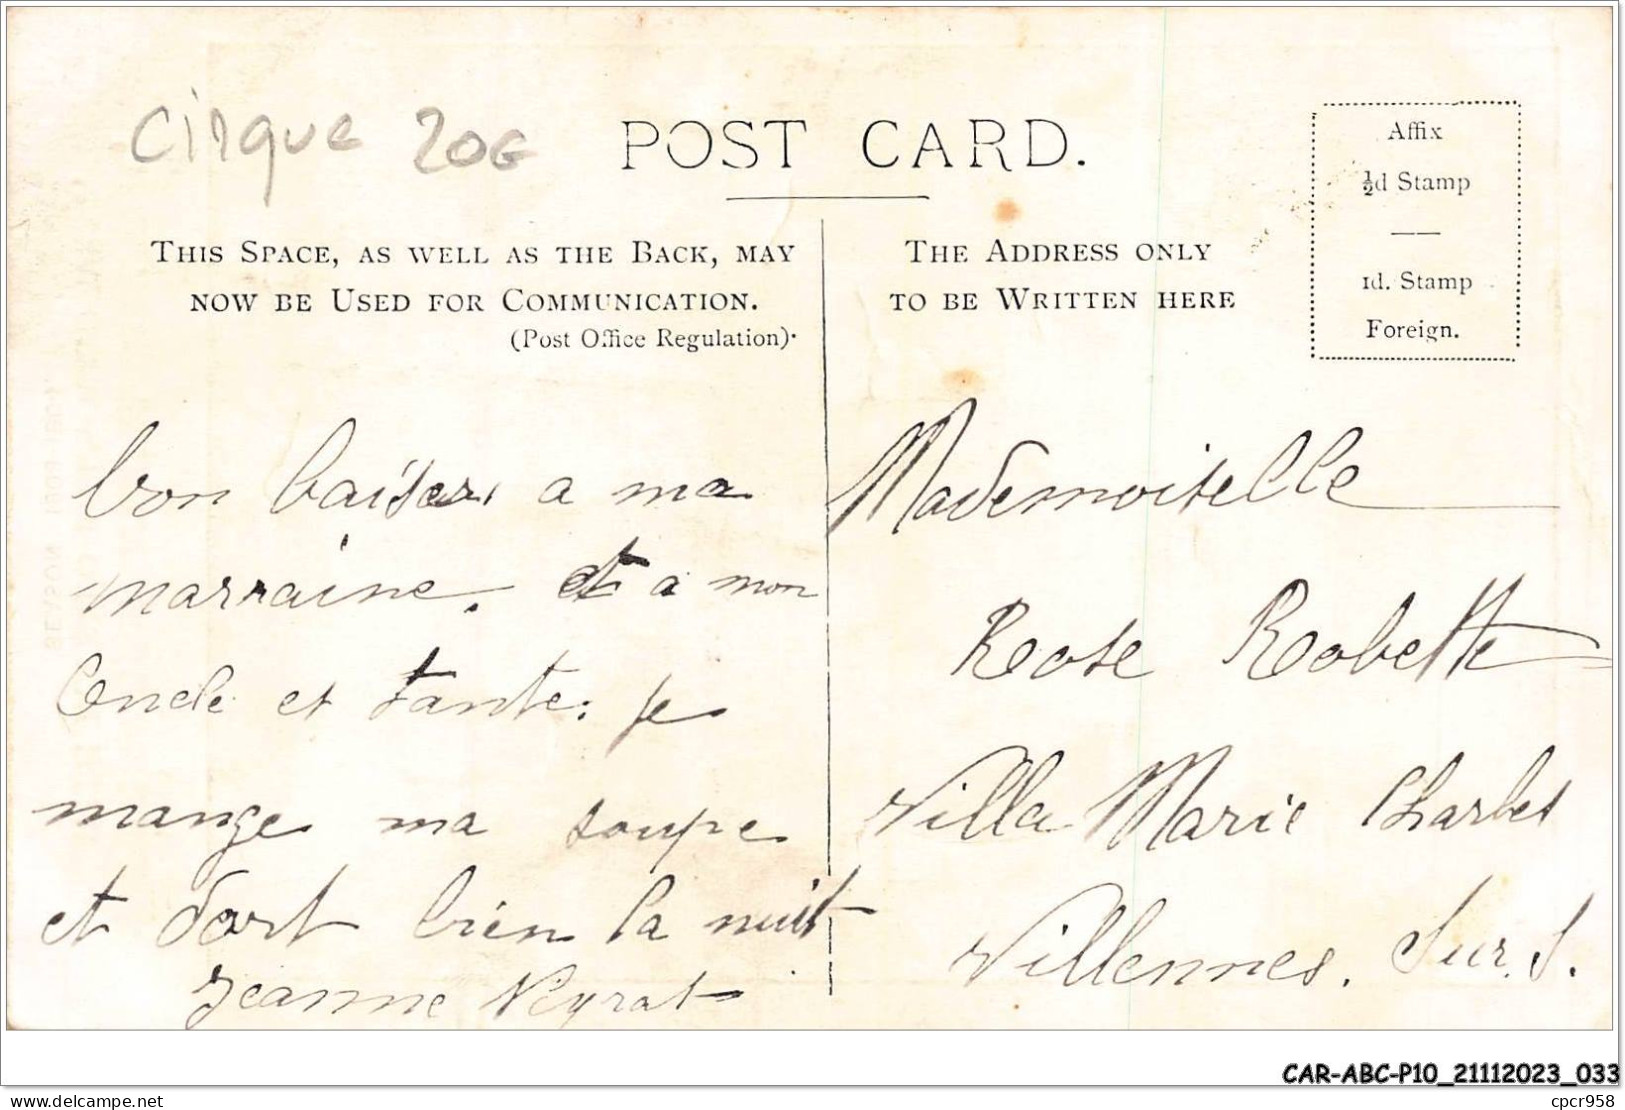 Cirque 20G
POST CARD.
THIS SPACE, AS WELL AS THE BACK, MAY
NOW BE USED FOR COMMUNICATION.
(Post Office Regulation).
THE ADDRESS ONLY
TO BE WRITTEN HERE
Affix
½d Stamp
1d. Stamp
Foreign.
bon baiser a ma
marraine. et a mon
Oncle et tante. je
mange ma soupe
et dort bien la nuit
Jeanne Veyrat
Mademoiselle
Rose Robette
Villa Marie Charles
Villennes. Sur. S.
CAR-ABC-P10_21112023_033
delcampe.net
cpcr958